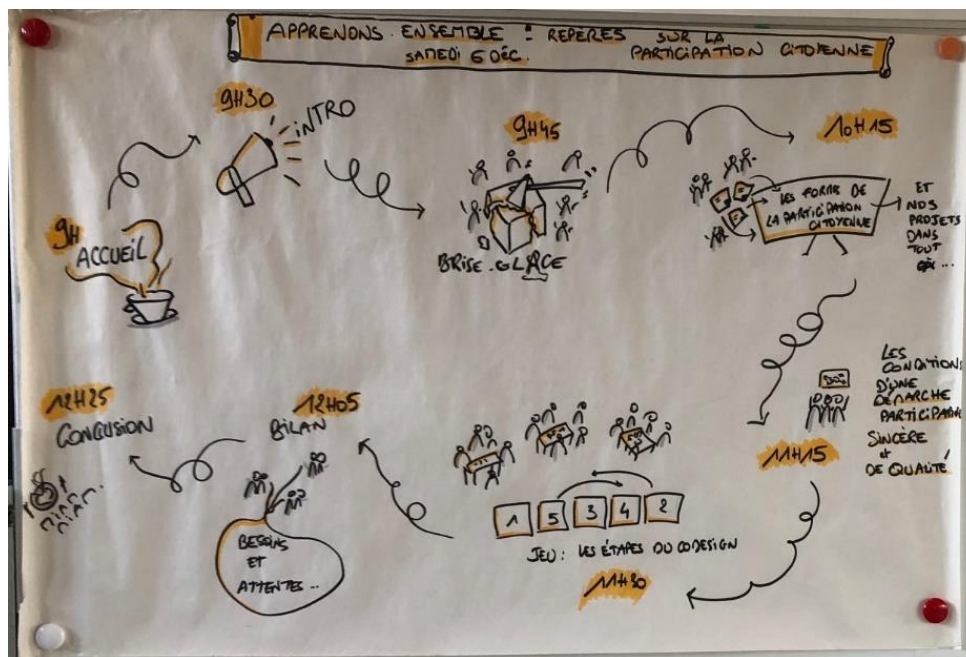 APPRENONS ENSEMBLE : REPÈRES SUR LA
SAMEDI 6 DÉC. PARTICIPATION CITOYENNE
9H
ACCUEIL
9H30
INTRO
9H45
BRISE-GLACE
10H15
LES FORMES DE
LA PARTICIPATION
CITOYENNE
ET
NOS
PROJETS
DANS
TOUT
11H15
LES
CONDITIONS
D'UNE
DÉMARCHE
PARTICIPATIVE
SINCÈRE
et
DE QUALITÉ
11H30
1 5 3 4 2
JEU : LES ÉTAPES DU CODESIGN
12H05
BILAN
BESOINS
ET
ATTENTES...
12H25
CONCUSION